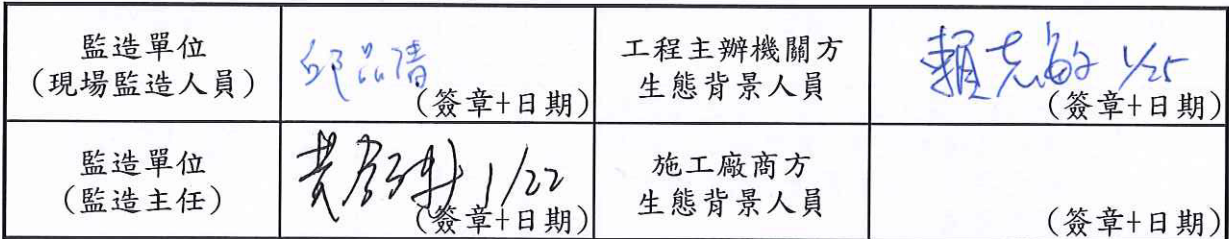 監造單位
(現場監造人員)
邱品清
(簽章+日期)
工程主辦機關方
生態背景人員
賴志敏 1/25
(簽章+日期)
監造單位
(監造主任)
1/22
(簽章+日期)
施工廠商方
生態背景人員
(簽章+日期)